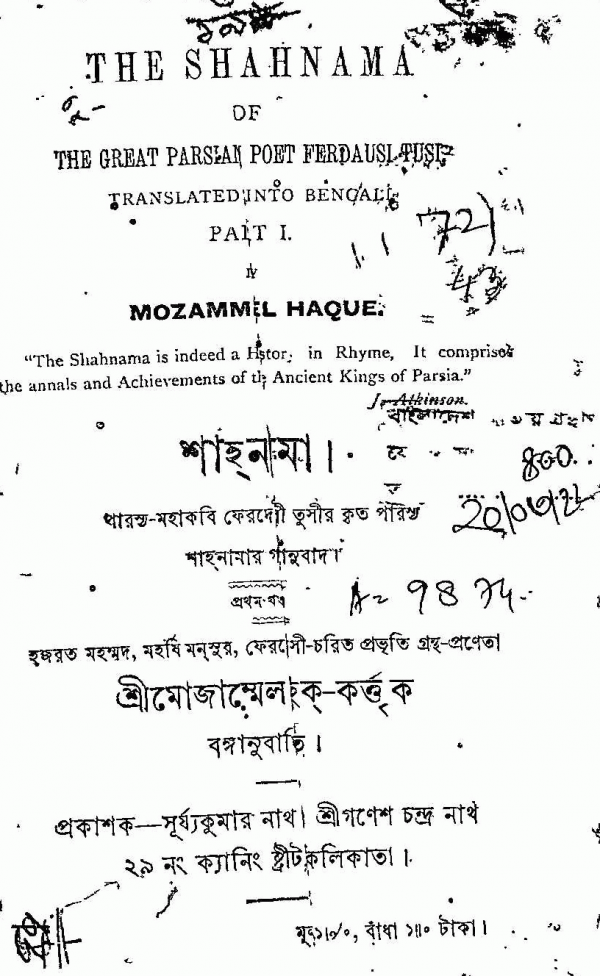 THE SHAHNAMA
OF
THE GREAT PARSIAN POET FERDAUSI TUSI
TRANSLATED INTO BENGALI
PART I.
MOZAMMEL HAQUE.
"The Shahnama is indeed a History in Rhyme, It comprises
the annals and Achievements of the Ancient Kings of Parsia."
J. Atkinson.
বাংলাদেশ
শাহ্‌নামা।
800
পারস্য-মহাকবি ফেরদৌসী তুসীর কৃত পারস্য
20/06/72
শাহ্‌নামার গদ্যানুবাদ।
প্রথম-খণ্ড
A= 98 74
হজরত মহম্মদ, মহর্ষি মন্‌সুর, ফেরদৌসী-চরিত প্রভৃতি গ্রন্থ-প্রণেতা
শ্রীমোজাম্মেল হক্‌-কর্ত্তৃক
বঙ্গানুবাদিত।
প্রকাশক—সূর্য্যকুমার নাথ। শ্রীগণেশ চন্দ্র নাথ
২৯ নং ক্যানিং ষ্ট্রীট কলিকাতা।
বাঁধা ১॥০ টাকা।